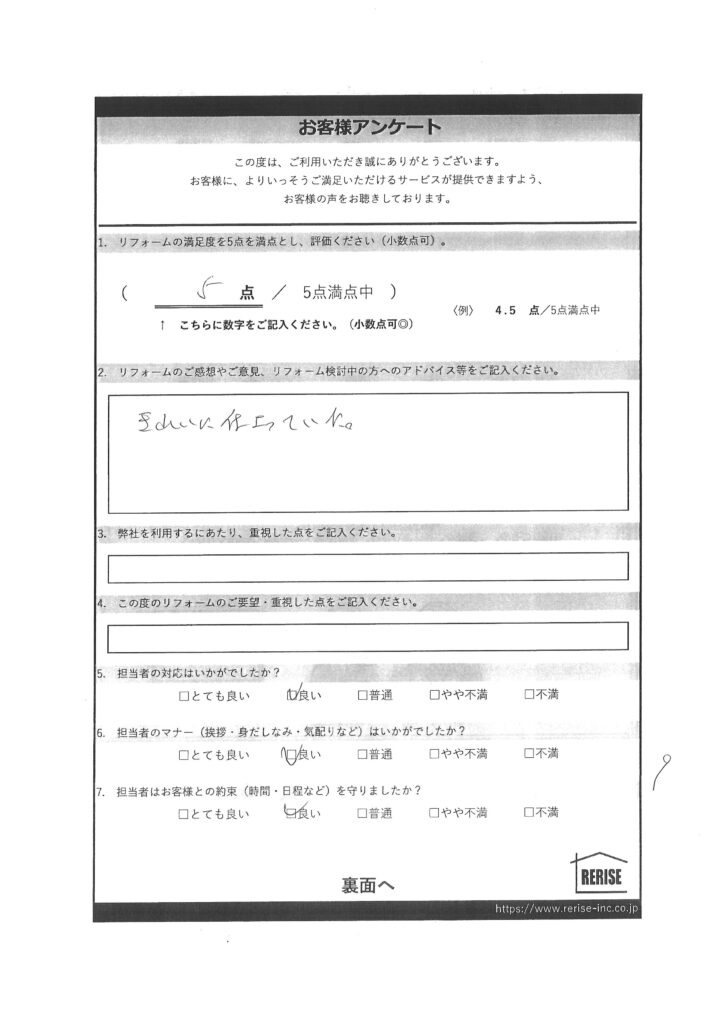 お客様アンケート
この度は、ご利用いただき誠にありがとうございます。
お客様に、よりいっそうご満足いただけるサービスが提供できますよう、
お客様の声をお聴きしております。
1. リフォームの満足度を5点を満点とし、評価ください（小数点可）。
（ 5 点 ／ 5点満点中 ）
〈例〉 4.5 点／5点満点中
↑ こちらに数字をご記入ください。（小数点可◎）
2. リフォームのご感想やご意見、リフォーム検討中の方へのアドバイス等をご記入ください。
きれいに仕上っていた。
3. 弊社を利用するにあたり、重視した点をご記入ください。
4. この度のリフォームのご要望・重視した点をご記入ください。
5. 担当者の対応はいかがでしたか？
□とても良い ☑良い □普通 □やや不満 □不満
6. 担当者のマナー（挨拶・身だしなみ・気配りなど）はいかがでしたか？
□とても良い ☑良い □普通 □やや不満 □不満
7. 担当者はお客様との約束（時間・日程など）を守りましたか？
□とても良い ☑良い □普通 □やや不満 □不満
裏面へ
RERISE
https://www.rerise-inc.co.jp